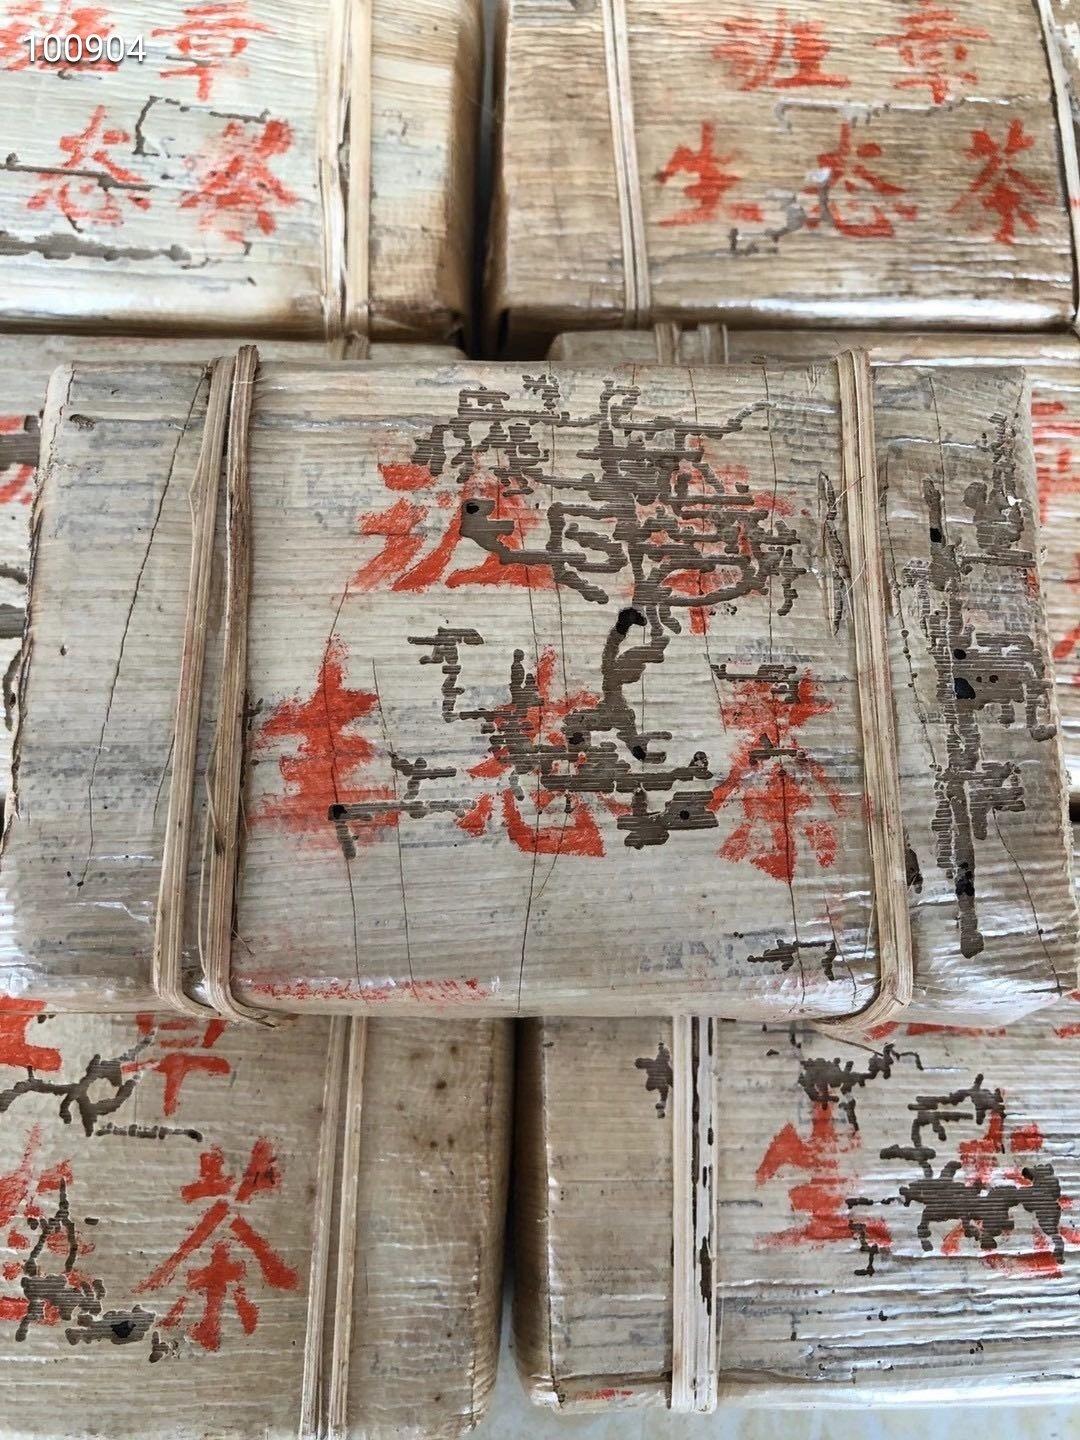 100904
班章
态茶
班章
生态茶
班章
生态茶
章
态茶
生态